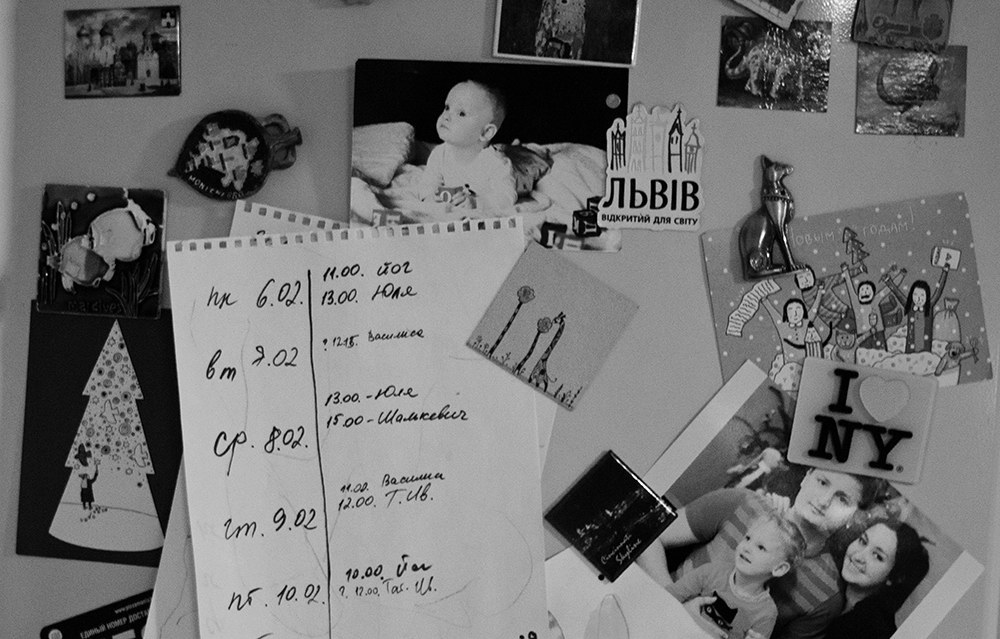 ЛЬВІВ
ВІДКРИТИЙ ДЛЯ СВІТУ
пн 6.02.
11.00. Йог
13.00. Юля
вт 7.02
? 12.15. Василиса
ср. 8.02.
13.00.-Юля
15.00-Шалькевич
чт. 9.02
11.00. Василиса
12.00. Т.Ив.
пт. 10.02.
10.00. Йог
?. 12.00. Тат. Ив.
НОВЫМ ГОДАМ!
I
NY
Cincinnati
Skyline
ЕДИНЫЙ НОМЕР